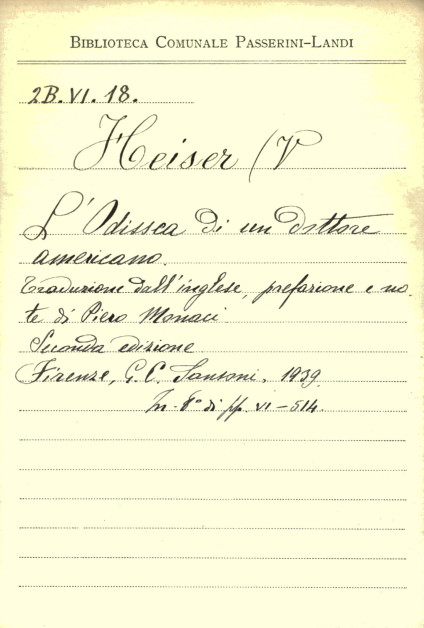 BIBLIOTECA COMUNALE PASSERINI-LANDI
2B. VI. 18.
Heiser (V
L'Odissea di un dottore
americano.
Traduzione dall'inglese, prefazione e no.
te di Piero Monaci.
Seconda edizione
Firenze, G. C. Sansoni, 1939
In-8° di pp. VI-514.